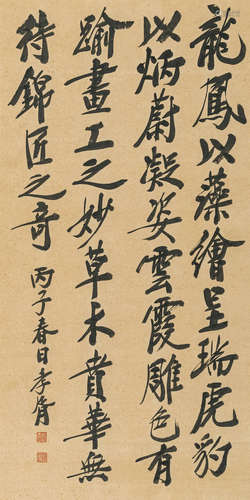 龍鳳以藻繪呈瑞虎豹
以炳蔚凝姿雲霞雕色有
踰畫工之妙草木賁華無
待錦匠之奇
丙子春日孝胥